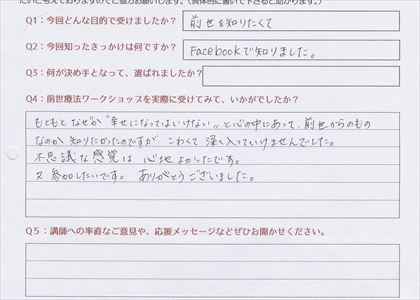 たいと考えておりますのでご協力お願いします。(具体的に書いて下さると助かります。)
Q1：今回どんな目的で受けましたか？ 前世を知りたくて
Q2：今回知ったきっかけは何ですか？ Facebookで知りました。
Q3：何が決め手となって、選ばれましたか？
Q4：前世療法ワークショップを実際に受けてみて、いかがでしたか？
もともとなぜか"幸せになってはいけない"と心の中にあって、前世からのもの
なのか知りたかったのですが、こわくて深く入っていけませんでした。
不思議な感覚は心地よかったです。
又参加したいです。ありがとうございました。
Q5：講師への率直なご意見や、応援メッセージなどぜひお聞かせください。